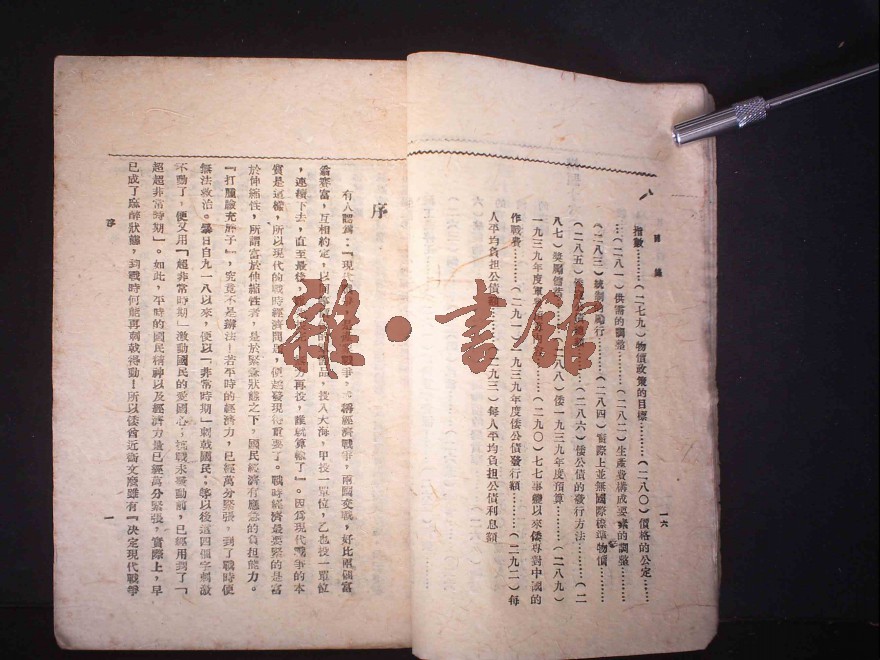 一六
指數………(二七九)物價政策的目標………(二八〇)價格的公定……
…(二八一)供需的調整………(二八二)生產費構成要素的調整………
(二八三)統制的行………(二八四)實際上並無國際標準物價………
(二八五)倭………(二八六)倭公債的發行方法………(二
八七)獎勵儲(二八八)倭一九三九年度預算………(二八九)
一九三九年度軍(二九〇)七七事變以來倭專對中國的
作戰費………(二九一)一九三九年度倭公債發行額………(二九二)每
人平均負担公債(二九三)每人平均負担公債利息額
序
有人譬爲:『現戰爭,經濟戰爭,兩國交戰,好比兩個富
翁賽富,互相約定,以同品,投入大海,甲投一單位,乙也投一單位
,連續下去,直至最後再投,誰就算輸了』。因爲現代戰爭的本
質是這樣,所以現代的戰時經濟問題,便越發現得重要了。戰時經濟最要緊的是富
於伸縮性,所謂富於伸縮性者,是於緊急狀態之下,國民經濟有應急的負担能力。
『打腫臉充胖子』,究竟不是辦法!若平時的經濟力,已經萬分緊張,到了戰時便
無法救治。暴日自九一八以來,便以「非常時期」刺戟國民;等以後這四個字刺激
不動了,便又用「超非常時期」激動國民的愛國心;抗戰未發動前,已經用到了「
超超非常時期」。如此,平時的國民精神以及經濟力量已經萬分緊張,實際上,早
已成了麻醉狀態,到戰時何能再刺戟得動!所以倭首近衛文麿雖有『決定現代戰爭
序
一
雜·書館